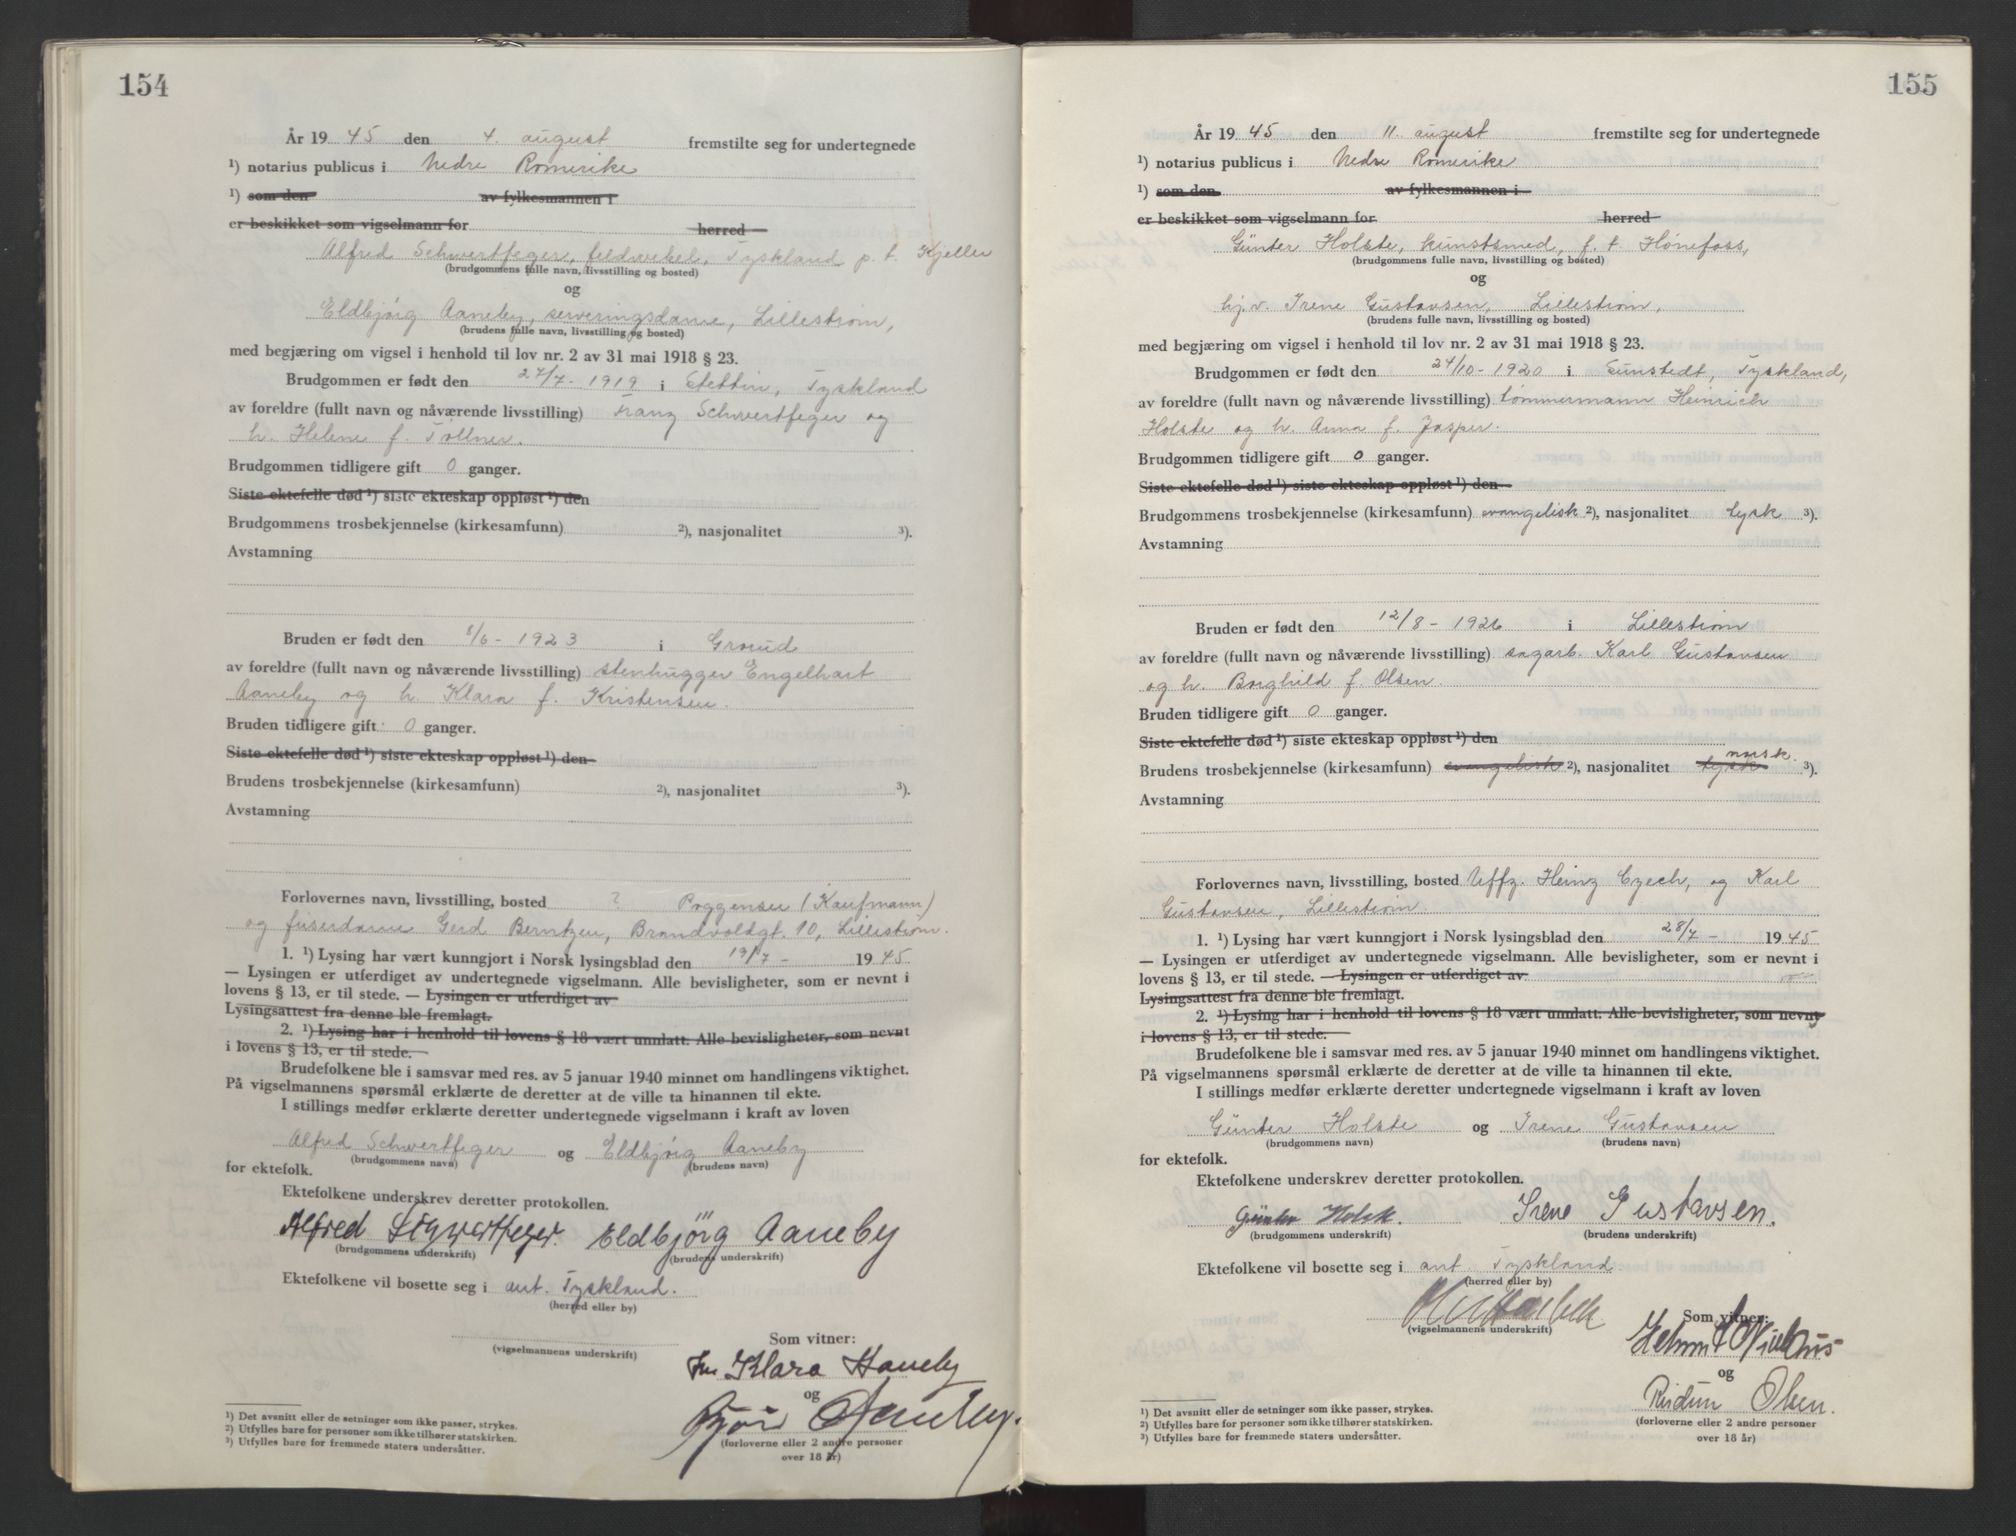 154
År 1945 den 4. august fremstilte seg for undertegnede
¹) notarius publicus i Nedre Romerike
¹) som den av fylkesmannen i
er beskikket som vigselmann for herred
Alfred Schwertfeger, feldwebel, Tyskland p. t. Kjeller
(brudgommens fulle navn, livsstilling og bosted)
og
Eldbjörg Aaneby, serveringsdame, Lillestrøm,
(brudens fulle navn, livsstilling og bosted)
med begjæring om vigsel i henhold til lov nr. 2 av 31 mai 1918 § 23.
Brudgommen er født den 27/7 - 1919 i Stettin, Tyskland
av foreldre (fullt navn og nåværende livsstilling) Franz Schwertfeger og
h. Helene f. Töllner.
Brudgommen tidligere gift 0 ganger.
Siste ektefelle død ¹) siste ekteskap oppløst ¹) den
Brudgommens trosbekjennelse (kirkesamfunn) ²), nasjonalitet ³).
Avstamning
Bruden er født den 8/6 - 1923 i Grorud
av foreldre (fullt navn og nåværende livsstilling) stenhugger Engelhart
Aaneby og h. Klara f. Kristensen.
Bruden tidligere gift 0 ganger.
Siste ektefelle død ¹) siste ekteskap oppløst ¹) den
Brudens trosbekjennelse (kirkesamfunn) ²), nasjonalitet ³).
Avstamning
Forlovernes navn, livsstilling, bosted ? Poggensee (Kaufmann)
og frisérdame Gerd Berntzen, Brandvoldgt. 10, Lillestrøm.
1. ¹) Lysing har vært kunngjort i Norsk lysingsblad den 19/7 - 1945.
— Lysingen er utferdiget av undertegnede vigselmann. Alle bevisligheter, som er nevnt i
lovens § 13, er til stede. — Lysingen er utferdiget av
Lysingsattest fra denne ble fremlagt.
2. ¹) Lysing har i henhold til lovens § 18 vært unnlatt. Alle bevisligheter, som nevnt
i lovens § 13, er til stede.
Brudefolkene ble i samsvar med res. av 5 januar 1940 minnet om handlingens viktighet.
På vigselmannens spørsmål erklærte de deretter at de ville ta hinannen til ekte.
I stillings medfør erklærte deretter undertegnede vigselmann i kraft av loven
Alfred Schwertfeger og Eldbjörg Aaneby
(brudgommens navn) (brudens navn)
for ektefolk.
Ektefolkene underskrev deretter protokollen.
Alfred Schwertfeger. Eldbjörg Aaneby
(brudgommens underskrift) (brudens underskrift)
Ektefolkene vil bosette seg i ant. Tyskland.
(herred eller by)
Som vitner:
(vigselmannens underskrift)
Fru Klara Aaneby
og
(forloverne eller 2 andre personer
over 18 år)
¹) Det avsnitt eller de setninger som ikke passer, strykes.
²) Utfylles bare for personer som ikke tilhører statskirken.
³) Utfylles bare for fremmede staters undersåtter.
155
År 1945 den 11. august fremstilte seg for undertegnede
¹) notarius publicus i Nedre Romerike
¹) som den av fylkesmannen i
er beskikket som vigselmann for herred
Günter Holste, kunstsmed, f. t. Hønefoss,
(brudgommens fulle navn, livsstilling og bosted)
og
hj.v. Irene Gustavsen, Lillestrøm,
(brudens fulle navn, livsstilling og bosted)
med begjæring om vigsel i henhold til lov nr. 2 av 31 mai 1918 § 23.
Brudgommen er født den 24/10 - 1920 i Sunstedt, Tyskland,
av foreldre (fullt navn og nåværende livsstilling) tømmermann Heinrich
Holste og h. Anna f. Jasper.
Brudgommen tidligere gift 0 ganger.
Siste ektefelle død ¹) siste ekteskap oppløst ¹) den
Brudgommens trosbekjennelse (kirkesamfunn) evangelisk ²), nasjonalitet tysk ³).
Avstamning
Bruden er født den 12/8 - 1926 i Lillestrøm
av foreldre (fullt navn og nåværende livsstilling) sagarb. Karl Gustavsen
og h. Borghild f. Olsen.
Bruden tidligere gift 0 ganger.
Siste ektefelle død ¹) siste ekteskap oppløst ¹) den
norsk.
Brudens trosbekjennelse (kirkesamfunn) evangelisk ²), nasjonalitet tysk ³).
Avstamning
Forlovernes navn, livsstilling, bosted Uffz. Heinz Czech, og Karl
Gustavsen, Lillestrøm.
1. ¹) Lysing har vært kunngjort i Norsk lysingsblad den 28/7 - 1945
— Lysingen er utferdiget av undertegnede vigselmann. Alle bevisligheter, som er nevnt i
lovens § 13, er til stede. — Lysingen er utferdiget av
Lysingsattest fra denne ble fremlagt.
2. ¹) Lysing har i henhold til lovens § 18 vært unnlatt. Alle bevisligheter, som nevnt
i lovens § 13, er til stede.
Brudefolkene ble i samsvar med res. av 5 januar 1940 minnet om handlingens viktighet.
På vigselmannens spørsmål erklærte de deretter at de ville ta hinannen til ekte.
I stillings medfør erklærte deretter undertegnede vigselmann i kraft av loven
Günter Holste og Irene Gustavsen
(brudgommens navn) (brudens navn)
for ektefolk.
Ektefolkene underskrev deretter protokollen.
Günter Holste. Irene Gustavsen.
(brudgommens underskrift) (brudens underskrift)
Ektefolkene vil bosette seg i ant. Tyskland
(herred eller by)
Som vitner:
(vigselmannens underskrift)
Helmut
og
Olsen.
(forloverne eller 2 andre personer
over 18 år)
¹) Det avsnitt eller de setninger som ikke passer, strykes.
²) Utfylles bare for personer som ikke tilhører statskirken.
³) Utfylles bare for fremmede staters undersåtter.